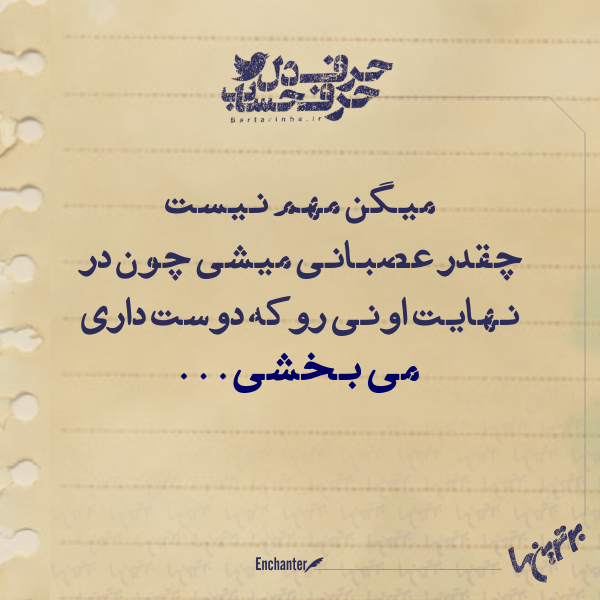 حرف دل
حرف حساب
Bartarinha.ir
میگن مهم نیست
چقدر عصبانی میشی چون در
نهایت اونی رو که دوست داری
می بخشی...
Enchanter
برترین‌ها